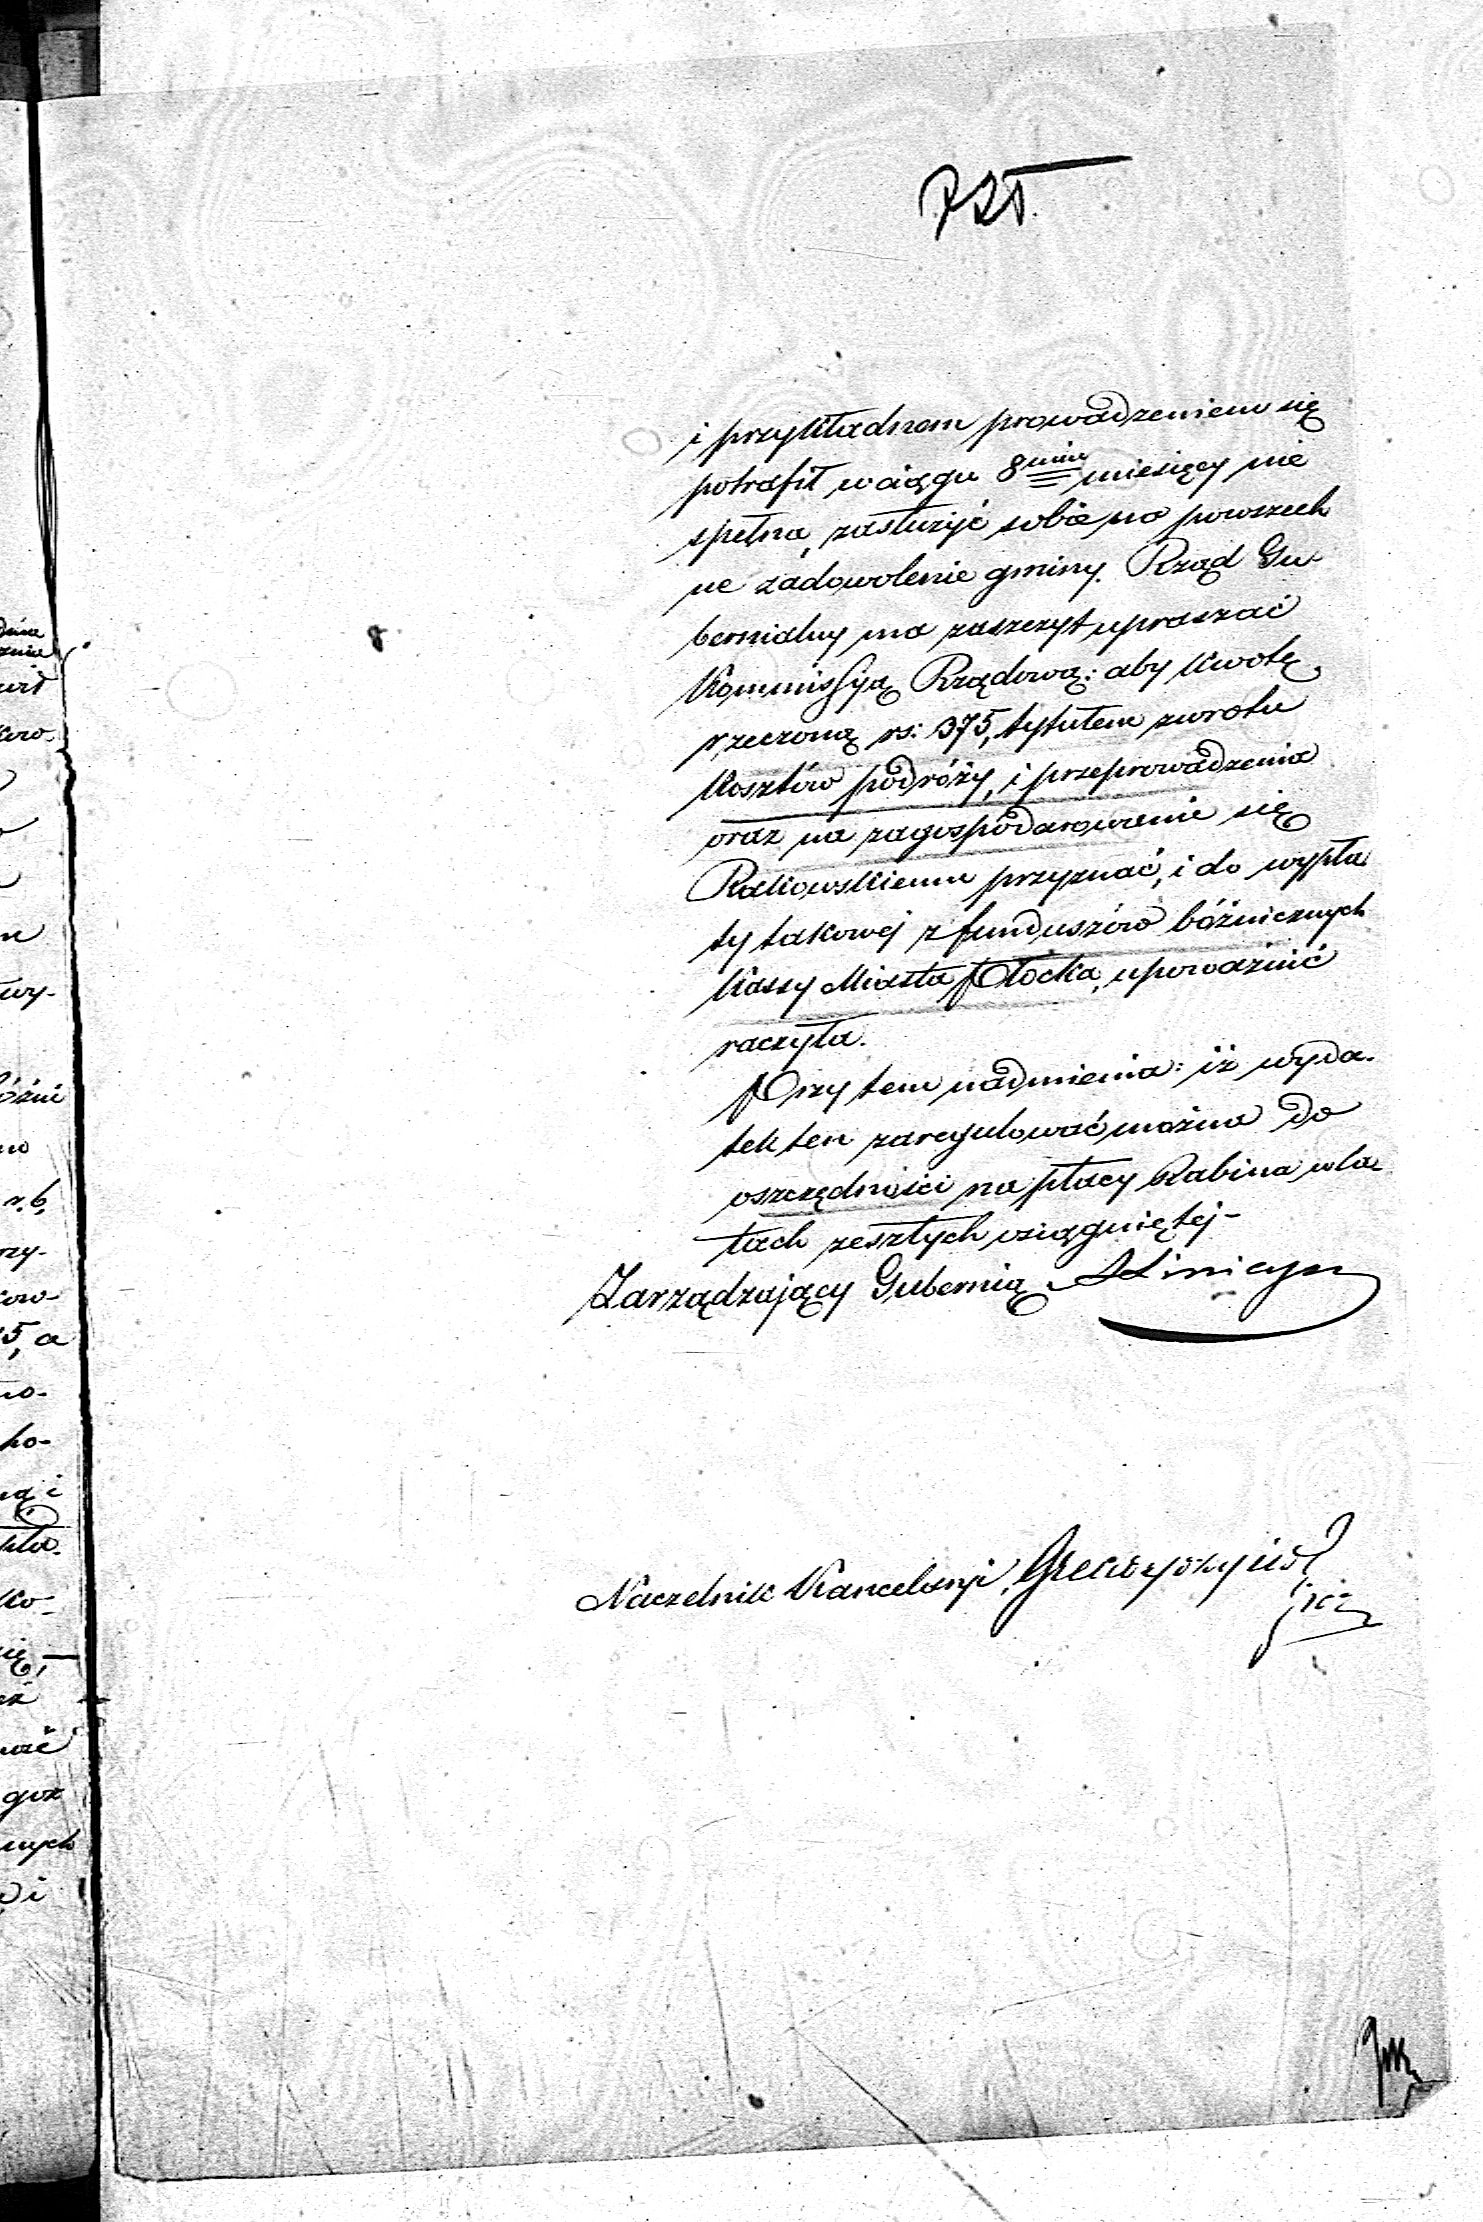 i przykładnem prowadzeniem się
potrafił w ciągu 8miu miesięcy nie
spełna, zasłużyć sobie na powszech
ne zadowolenie gminy. Rząd Gu-
bernialny ma zaszczyt upraszać
Kommissyą Rządową: aby kwotę
rzeczoną rs: 375, tytułem zwrotu
kosztów podróży, i przeprowadzenia
oraz na zagospodarowanie się
Rakowskiemu przyznać, i do wypła
ty takowej z funduszów bóżnicznych
Kassy Miasta Płocka, upoważnić
raczyła.
Przytem nadmienia: iż wyda-
tek ten zaregulować można do
oszczędności na płacy Rabina w la-
tach zeszłych osiągniętej-
Zarządzający Gubernią
Naczelnik Kancelaryi,